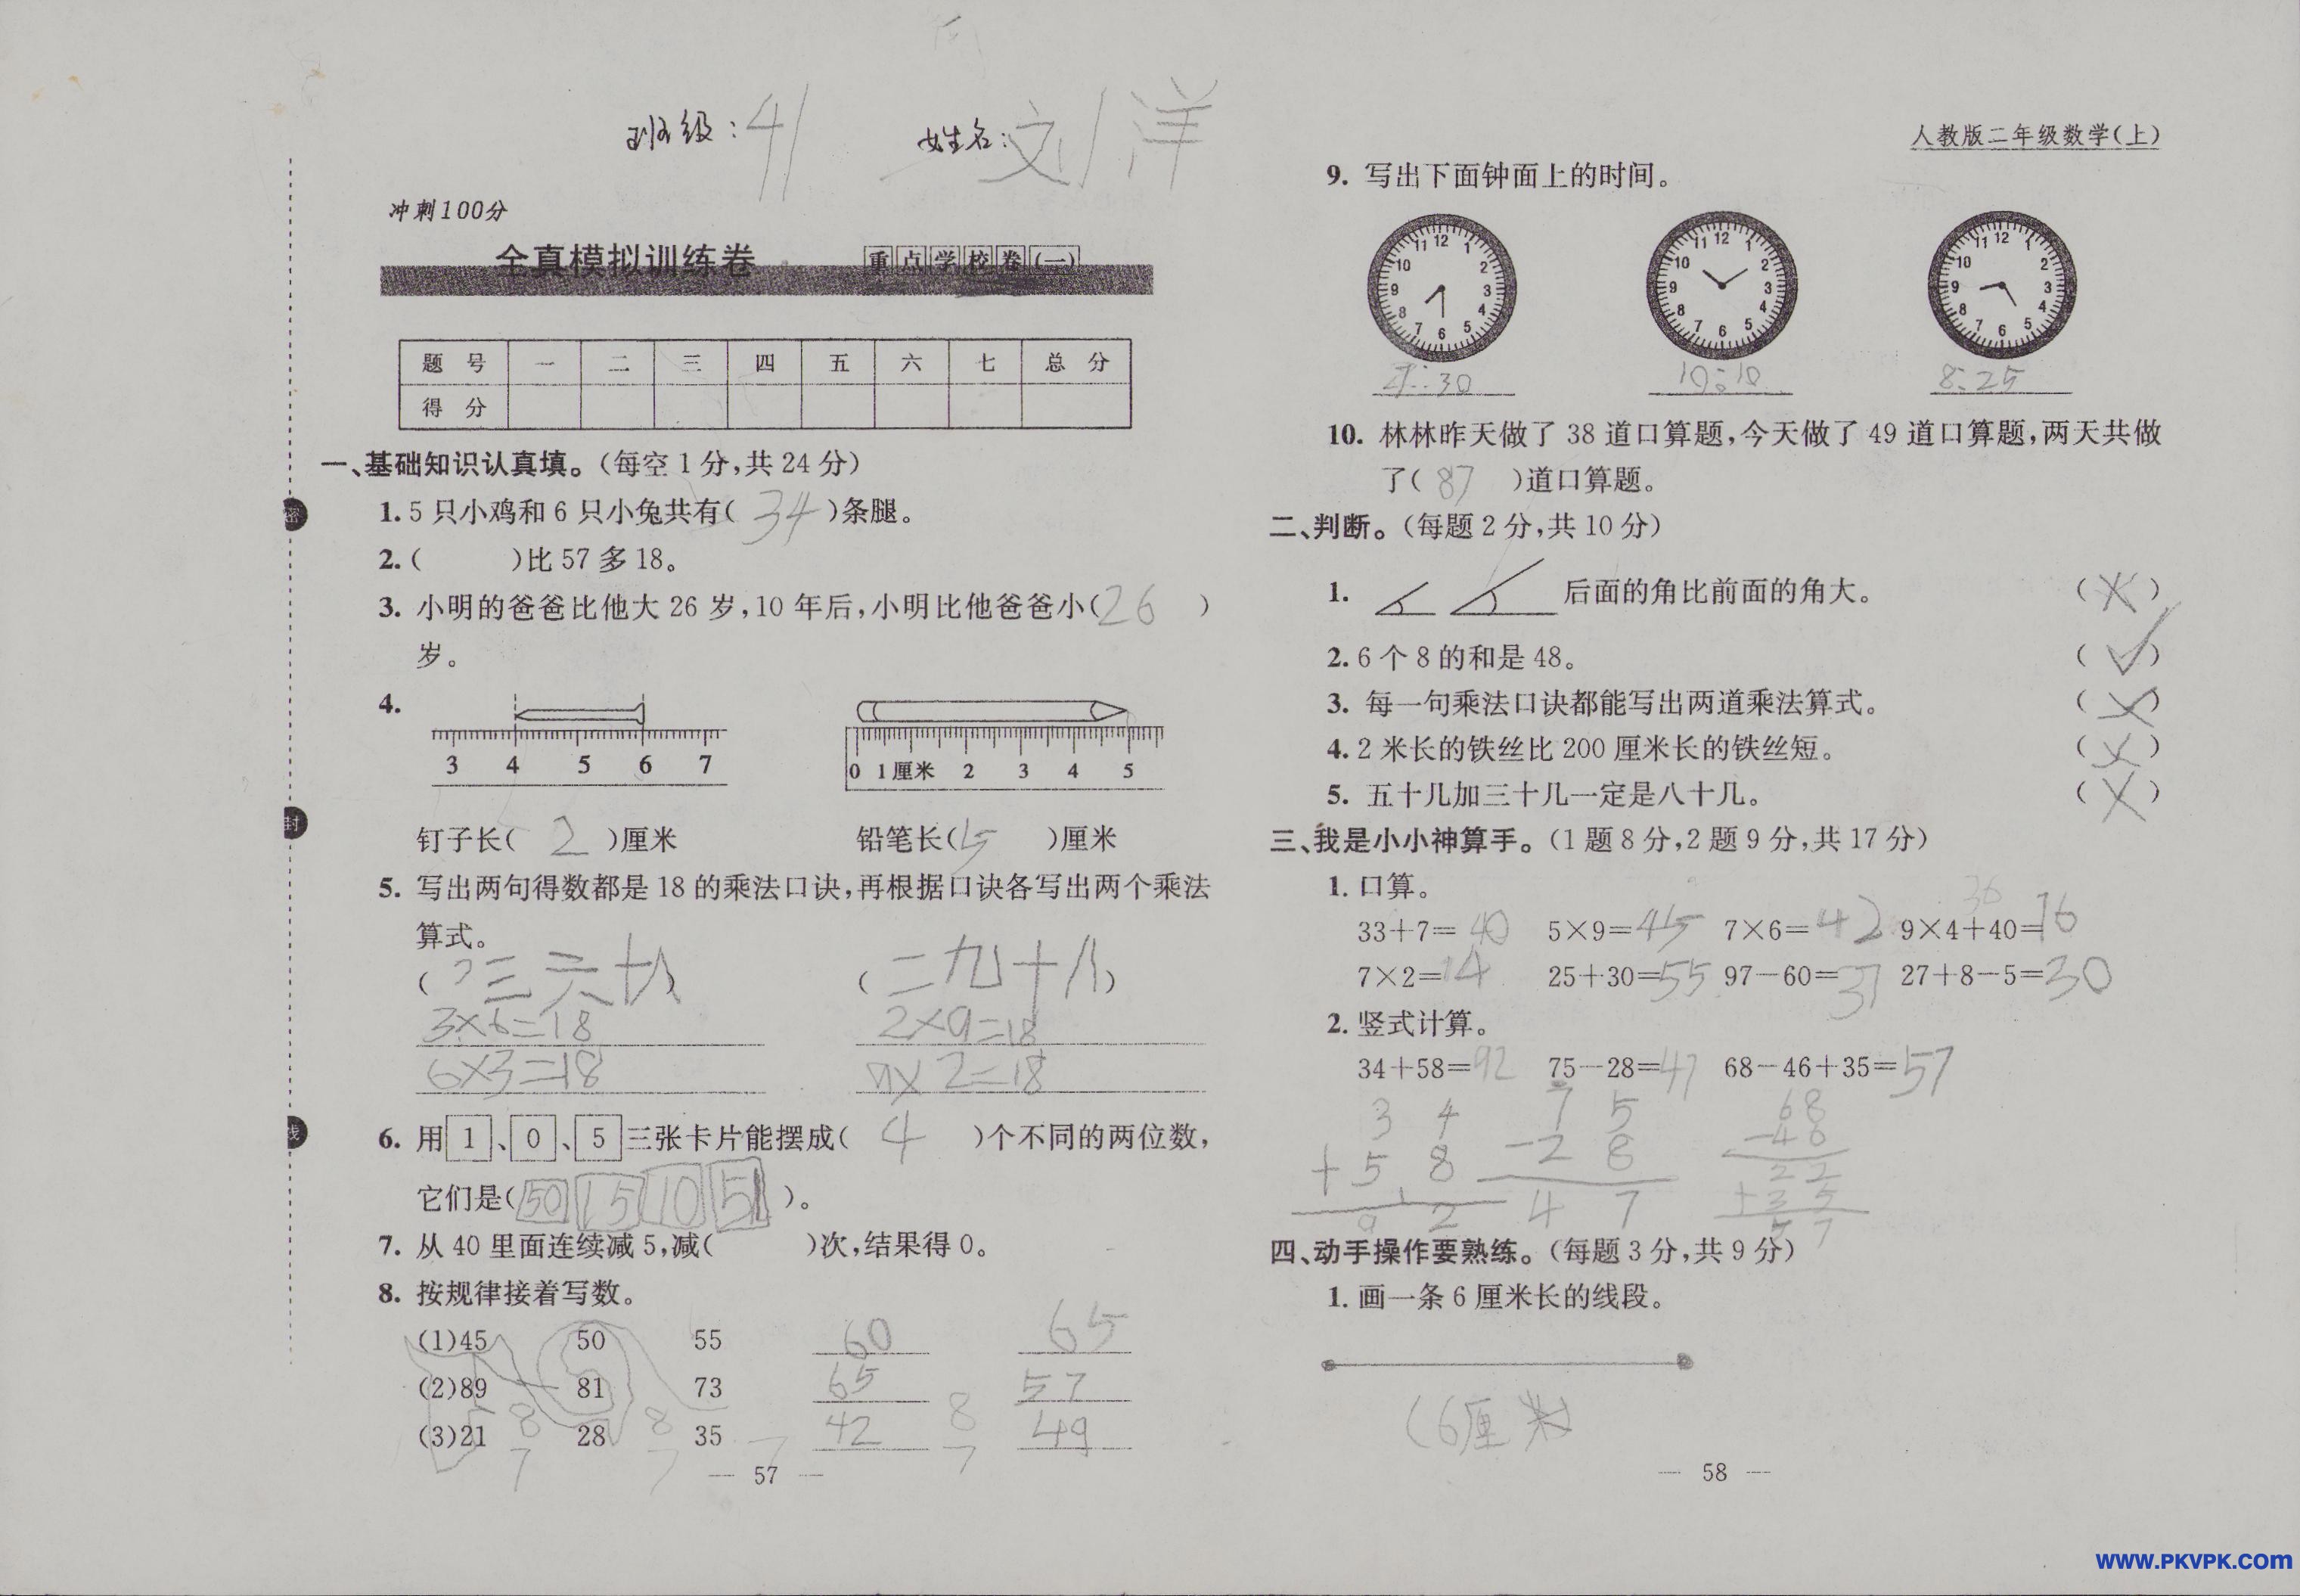 班级：41 姓名：刘洋
冲刺100分
全真模拟训练卷 重点学校卷(一)
题 号 一 二 三 四 五 六 七 总 分
得 分
一、基础知识认真填。(每空1分,共24分)
1. 5只小鸡和6只小兔共有( 34 )条腿。
2. ( )比57多18。
3. 小明的爸爸比他大26岁,10年后,小明比他爸爸小( 26 )
岁。
4.
3 4 5 6 7
0 1厘米 2 3 4 5
钉子长( 2 )厘米 铅笔长( 5 )厘米
5. 写出两句得数都是18的乘法口诀,再根据口诀各写出两个乘法
算式。
( 三六十八 ) ( 二九十八 )
3×6=18 2×9=18
6×3=18 9×2=18
6. 用 1 、 0 、 5 三张卡片能摆成( 4 )个不同的两位数,
它们是( 50 15 10 51 )。
7. 从40里面连续减5,减( )次,结果得0。
8. 按规律接着写数。
(1)45 50 55 60 65
(2)89 81 73 65 57
8 8 8
(3)21 28 35 42 49
7 7 7 7
— 57 —
人教版二年级数学(上)
9. 写出下面钟面上的时间。
12 1 2 3 4 5 6 7 8 9 10 11
12 1 2 3 4 5 6 7 8 9 10 11
12 1 2 3 4 5 6 7 8 9 10 11
:30 10:10 8:25
10. 林林昨天做了38道口算题,今天做了49道口算题,两天共做
了( 87 )道口算题。
二、判断。(每题2分,共10分)
1. 后面的角比前面的角大。 (×)
2. 6个8的和是48。 (√)
3. 每一句乘法口诀都能写出两道乘法算式。 (×)
4. 2米长的铁丝比200厘米长的铁丝短。 (×)
5. 五十几加三十几一定是八十几。 (×)
三、我是小小神算手。(1题8分,2题9分,共17分)
1. 口算。
36
33+7=40 5×9=45 7×6=42 9×4+40=76
7×2=14 25+30=55 97-60=37 27+8-5=30
2. 竖式计算。
34+58=92 75-28=47 68-46+35=57
3 4 7 5 68
+5 8 -2 8 -46
9 2 4 7 22
+35
57
四、动手操作要熟练。(每题3分,共9分)
1. 画一条6厘米长的线段。
(6厘米)
— 58 —
WWW.PKVPK.COM